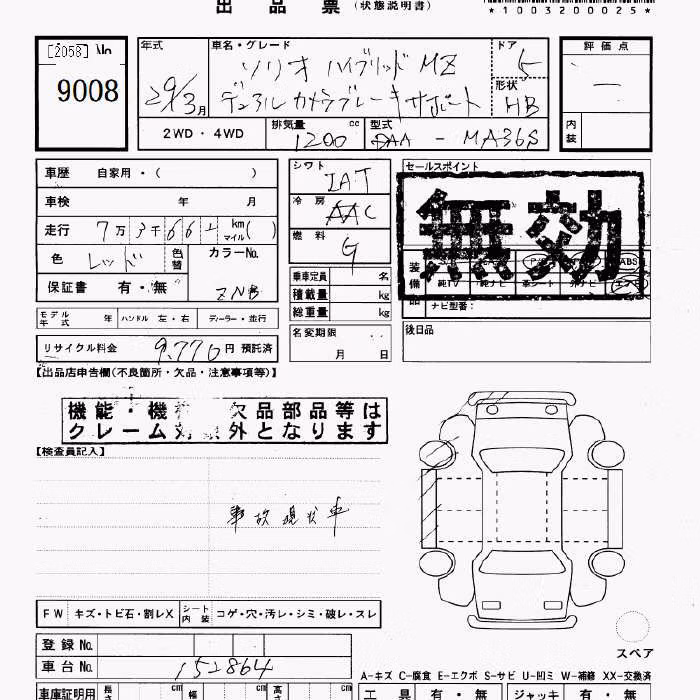 出品票 (状態説明書)
*1003200025*
[2058] No
9008
年式
29/3月
車名・グレード
ソリオ ハイブリッド MZ
デュアルカメラブレーキサポート
ドア
5
形状
HB
評価点
一
内装
2WD・4WD
排気量 cc
1200
型式
DAA - MA36S
車歴 自家用・( )
車検 年 月
走行 7万3千66 km マイル( )
色 レッド 色替
カラーNo.
ZNB
保証書 有・無
シフト
IAT
冷房
AAC
燃料
G
乗車定員 名
積載量 kg
総重量 kg
セールスポイント
無効
装備品
ABS
純TV 純ナビ 革シート 外ナビ エアB
ナビ型番:
モデル年式 年 ハンドル 左・右 ディーラー・並行
名変期限
月 日
後日品
リサイクル料金 9,770円 預託済
【出品店申告欄(不良箇所・欠品・注意事項等)】
機能・機 欠品部品等は
クレーム対 外となります
【検査員記入】
事故現状車
FW キズ・トビ石・割レX シート内装 コゲ・穴・汚レ・シミ・破レ・スレ
スペア
登録No.
車台No. 152864
A-キズ C-腐食 E-エクボ S-サビ U-凹ミ W-補修 XX-交換済
車庫証明用 長さ cm 幅 cm 高さ cm
工具 有・無 ジャッキ 有・無